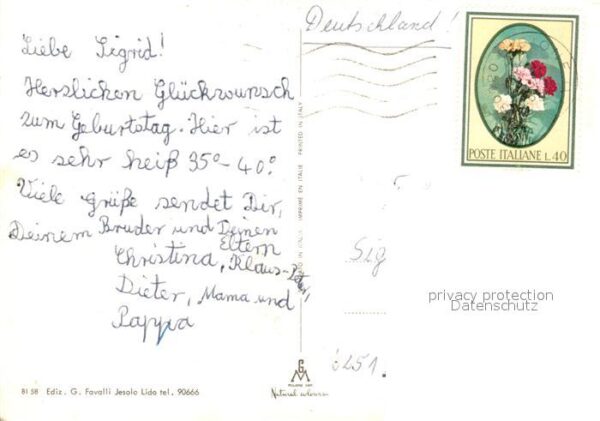 Liebe Sigrid!
Herzlichen Glückwunsch
zum Geburtstag. Hier ist
es sehr heiß 35°- 40°.
Viele Grüße sendet Dir,
Deinem Bruder und Deinen
Eltern
Christina, Klaus-Peter,
Dieter, Mama und
Pappa
81 58 Ediz. G. Favalli Jesolo Lido tel. 90666
PRINTED IN ITALY
IMPRIMÉ EN ITALIE
G
M
Natural colours
Deutschland!
POSTE ITALIANE L. 40
Sig
6251.
privacy protection
Datenschutz